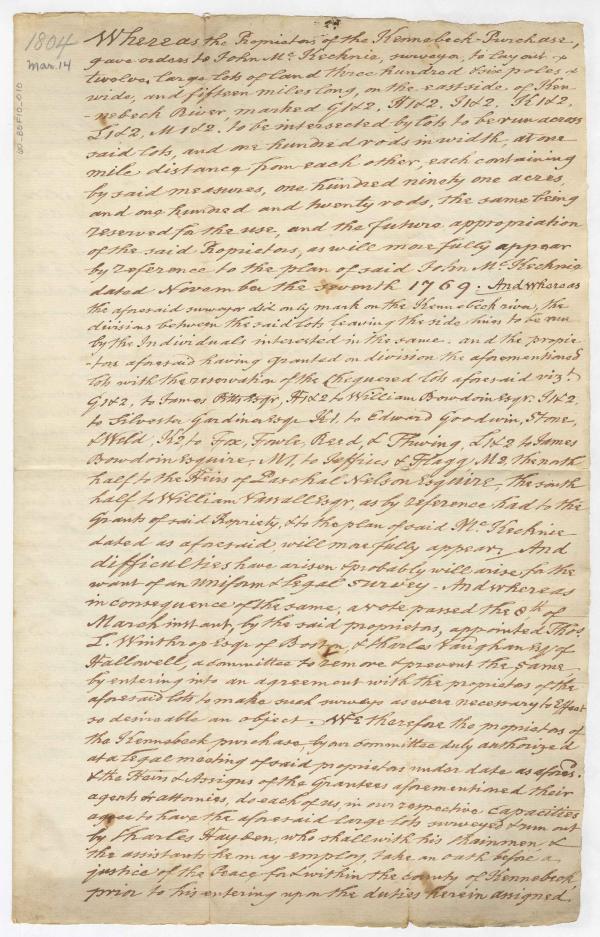 1804
Mar. 14
Whereas the Propietors of the Kennebeck-Purchase,
gave orders to John Mc. Kechnie, surveyor, to lay out
twelve large lots of land three hundred & six poles
wide, and fifteen miles long, on the east side of Ken-
-nebeck River, marked G1&2, H1&2. I1&2. K1&2,
L1&2, M1&2. to be intersected by lots to be run across
said lots, and one hundred rods in width, at one
mile distance from each other, each containing
by said measures, one hundred ninety one acres,
and one hundred and twenty rods, the same being
reserved for the use, and the future appropriation
of the said Propietors, as will more fully appear
by reference to the plan of said John Mc. Kechnie
dated November the seventh 1769. And whereas
the aforesaid surveyor did only mark on the Kennebeck river, the
divisions between the said lots, leaving the side lines to be run
by the Individuals interested in the same. and the propie-
-tors aforesaid having granted on division the aforementioned
lots with the reservation of the Chequered lots aforesaid vizt.
G1&2, to James Pitts Esqr, H1&2 to William Bowdoin Esqr. I1&2.
to Silvester Gardiner Esqr K1. to Edward Goodwin, Stone,
& Weld, K2 to Fox, Fowle, Reed, & Thwing, L1&2 to James
Bowdoin Esquire, M1, to Jeffries & Flagg M2, the north
half to the Heirs of Paschal Nelson Esquire, the south
half to William Vassall Esqr, as by reference had to the
Grants of said Propriety, & to the plan of said Mc. Kechnie
dated as aforesaid, will more fully appear, And
difficulties have arisen & probably will arise, for the
want of an uniform & legal survey. And whereas
in consequence of the same, a vote passed the 8th. of
March instant, by the said propietors, appointed Thos.
L. Winthrop Esqr of Boston, & Charles Vaughan Esqr of
Hallowell, a committee to remove & prevent the same
by entering into an agreement with the propietors of the
aforesaid lots to make such surveys as were necessary to effect
so desireable an object. We therefore the propietors of
the Kennebeck purchase, by our committee duly authorized
at a legal meeting of said propietors under date as aforesd.
& the Heirs & Assigns of the Grantees aforementioned their
agents or attornies, do each of us, in our respective capacities
agree to have the aforesaid large lots surveyed & run out
by Charles Hayden, who shall with his chainmen, &
the assistants he may employ, take an oath before a
justice of the Peace for & within the county of Kennebeck
prior to his entering upon the duties herein assigned.